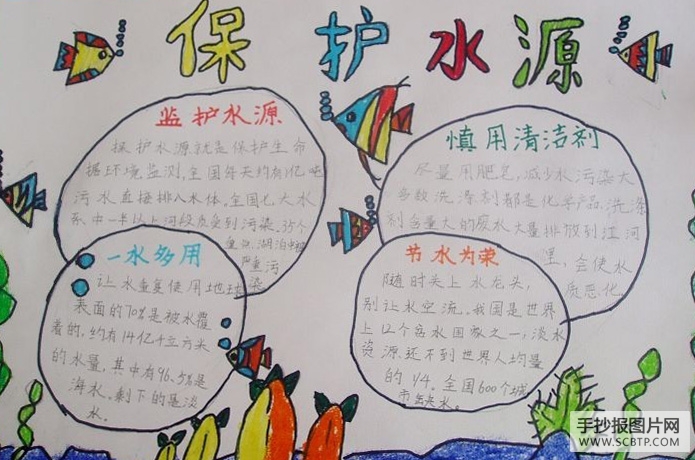 保护水源
监护水源
保护水源就是保护生命
据环境监测,全国每天约有1亿吨
污水直接排入水体。全国七大水
系中一半以上河段水质受到污染。35个
重点湖泊中
严重污
染
慎用清洁剂
尽量用肥皂,减少水污染大
多数洗涤剂都是化学产品,洗涤
剂含量大的废水大量排放到江河
里,会使水
质恶化。
一水多用
让水重复使用地球
表面的70%是被水覆
盖的,约有14亿千立方米
的水量,其中有96.5%是
海水。剩下的是淡
水。
节水为荣
随时关上水龙头,
别让水空流。我国是世界
上12个缺水国家之一,淡水
资源还不到世界人均量
的1/4.全国600个城
市缺水。
手抄报图片网
WWW.SCBTP.COM